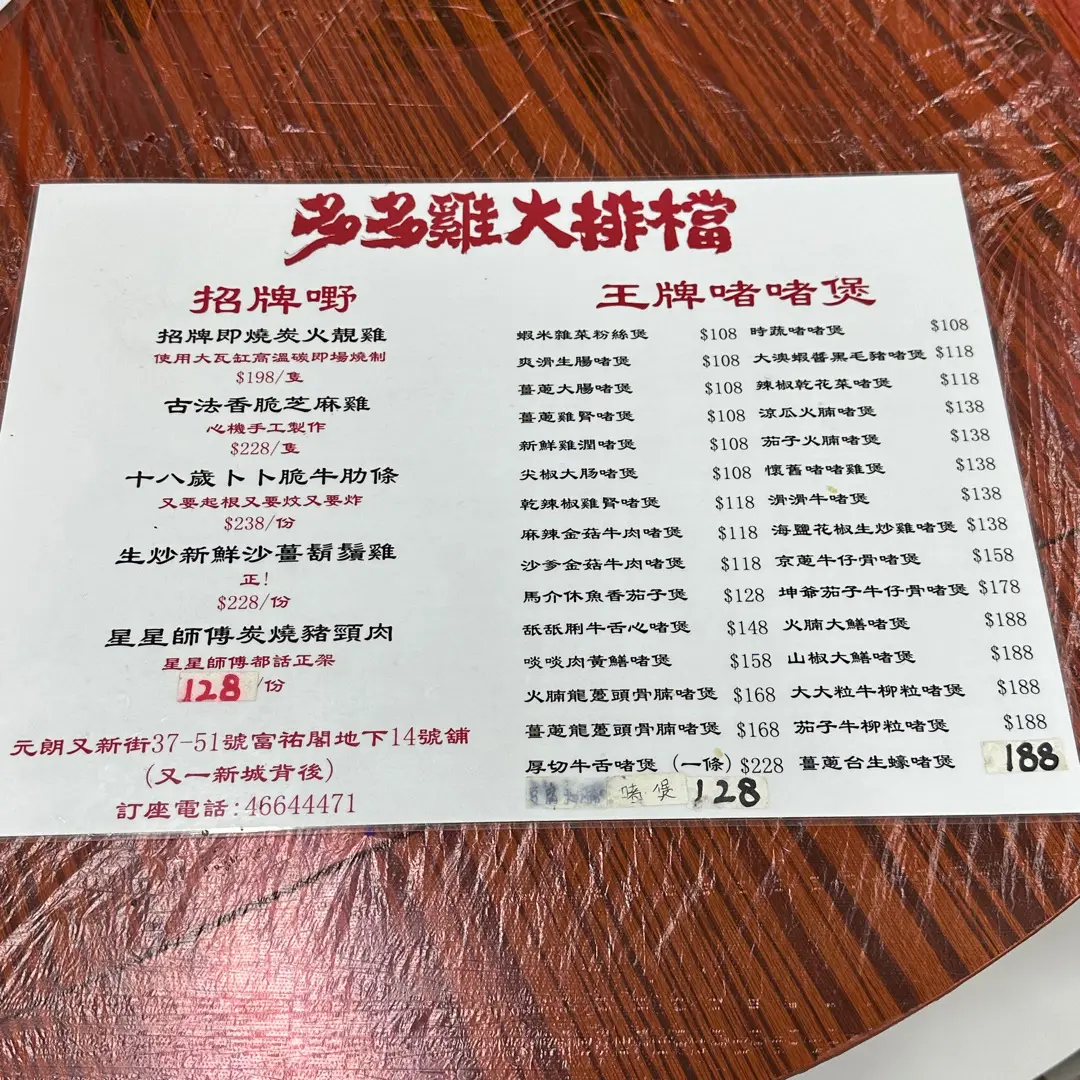 多多雞大排檔
招牌嘢
招牌即燒炭火靚雞
使用大瓦缸高溫碳即場燒制
$198/隻
古法香脆芝麻雞
心機手工製作
$228/隻
十八歲卜卜脆牛肋條
又要起根又要炆又要炸
$238/份
生炒新鮮沙薑鬍鬚雞
正!
$228/份
星星師傅炭燒豬頸肉
星星師傅都話正架
128/份
元朗又新街37-51號富祐閣地下14號舖
(又一新城背後)
訂座電話:46644471
王牌啫啫煲
蝦米雜菜粉絲煲 $108
爽滑生腸啫煲 $108
薑蔥大腸啫煲 $108
薑蔥雞腎啫煲 $108
新鮮雞潤啫煲 $108
尖椒大肠啫煲 $108
乾辣椒雞腎啫煲 $118
麻辣金菇牛肉啫煲 $118
沙爹金菇牛肉啫煲 $118
馬介休魚香茄子煲 $128
舐舐脷牛舌心啫煲 $148
啖啖肉黃鱔啫煲 $158
火腩龍躉頭骨腩啫煲 $168
薑蔥龍躉頭骨腩啫煲 $168
厚切牛舌啫煲 (一條) $228
啫煲 128
時蔬啫啫煲 $108
大澳蝦醬黑毛豬啫煲 $118
辣椒乾花菜啫煲 $118
涼瓜火腩啫煲 $138
茄子火腩啫煲 $138
懷舊啫啫雞煲 $138
滑滑牛啫煲 $138
海鹽花椒生炒雞啫煲 $138
京蔥牛仔骨啫煲 $158
坤爺茄子牛仔骨啫煲 $178
火腩大鱔啫煲 $188
山椒大鱔啫煲 $188
大大粒牛柳粒啫煲 $188
茄子牛柳粒啫煲 $188
薑蔥台生蠔啫煲 188